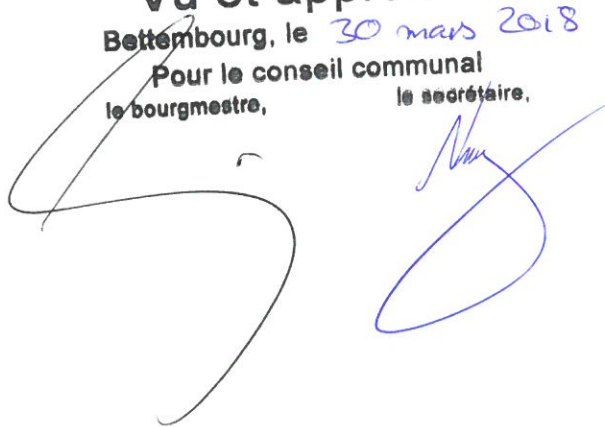 Vu et appro
Bettembourg, le 30 mars 2018
Pour le conseil communal
le bourgmestre, le secrétaire,